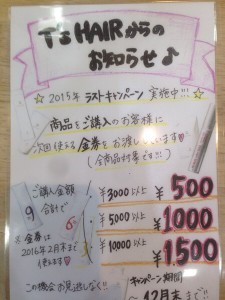 T's HAIRからの
お知らせ♪
☆2015年 ラストキャンペーン 実施中!!!
商品をご購入のお客様に
次回使える金券をお渡ししています♡
(全商品対象です!!!)
ご購入金額
合計で
¥3000以上 ¥500
¥5000以上 ¥1000
¥10000以上 ¥1500
※金券は
2016年2月末まで
使えます♡
この機会お見逃しなく!!
キャンペーン期間
〜12月末まで!!